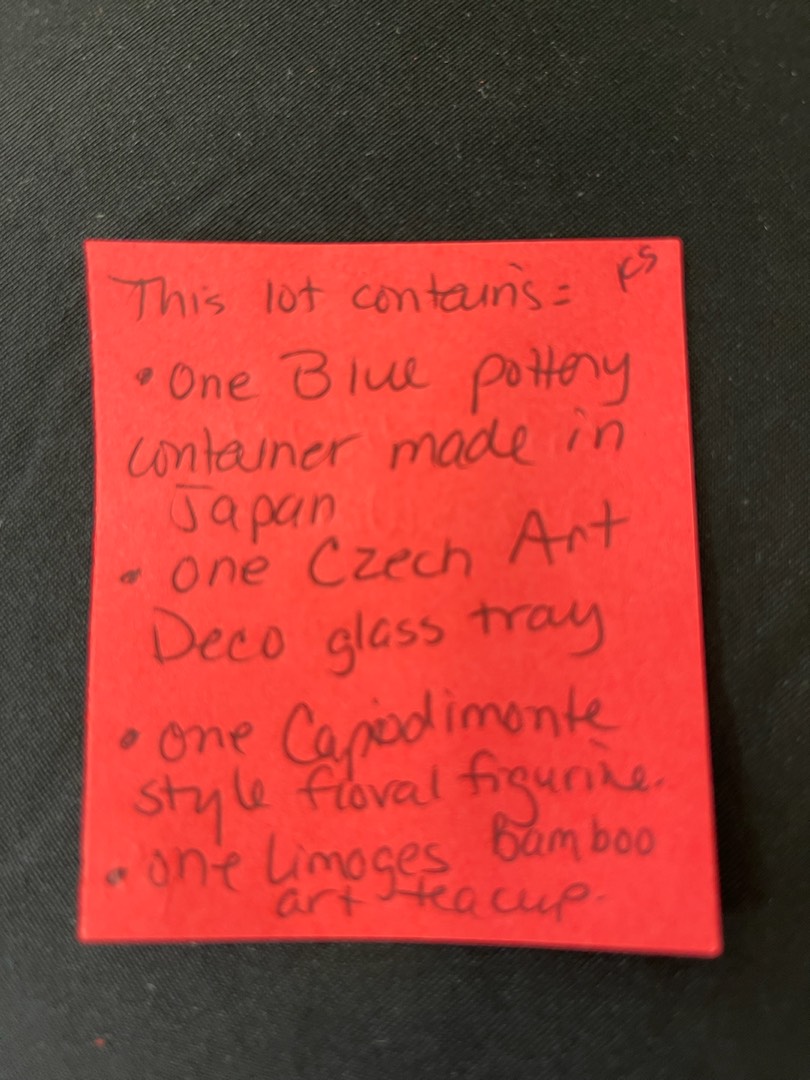 This lot contains= KS
• One Blue pottery
container made in
Japan
• one Czech Art
Deco glass tray
• one Capodimonte
style floral figurine.
• one Limoges Bamboo
art teacup.